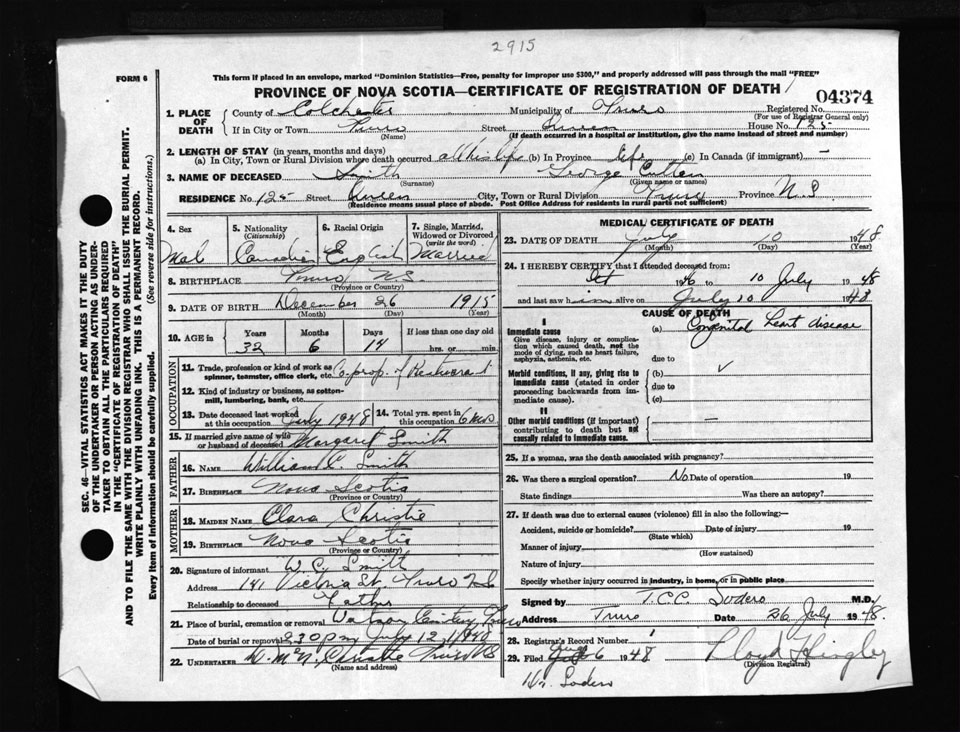 2915
FORM 6
This form if placed in an envelope, marked "Dominion Statistics—Free, penalty for improper use $300," and properly addressed will pass through the mail "FREE"
PROVINCE OF NOVA SCOTIA—CERTIFICATE OF REGISTRATION OF DEATH
04374
1. PLACE OF DEATH
County of Colchester Municipality of Truro Registered No.
(For use of Registrar General only)
If in City or Town Truro Street Queen House No. 125
(Name) (If death occurred in a hospital or institution, give the name instead of street and number)
2. LENGTH OF STAY (in years, months and days)
(a) In City, Town or Rural Division where death occurred all his life (b) In Province life (c) In Canada (if immigrant) —
3. NAME OF DECEASED Smith George Cutten
(Surname) (Given name or names)
RESIDENCE No. 125 Street Queen City, Town or Rural Division Truro Province N.S
(Residence means usual place of abode. Post Office Address for residents in rural parts not sufficient)
4. Sex 5. Nationality (Citizenship) 6. Racial Origin 7. Single, Married, Widowed or Divorced (write the word)
Male Canadian English Married
8. BIRTHPLACE Truro NS
(Province or Country)
9. DATE OF BIRTH December 26 1915
(Month) (Day) (Year)
10. AGE in Years Months Days If less than one day old
32 6 14 hrs. or min.
OCCUPATION
11. Trade, profession or kind of work as spinner, teamster, office clerk, etc. Co-prop. of Restaurant
12. Kind of industry or business, as cotton-mill, lumbering, bank, etc.
13. Date deceased last worked at this occupation July 1948 14. Total yrs. spent in this occupation 6 mos
15. If married give name of wife or husband of deceased Margaret Smith
FATHER
16. NAME William C. Smith
17. BIRTHPLACE Nova Scotia
(Province or Country)
MOTHER
18. MAIDEN NAME Clara Christie
19. BIRTHPLACE Nova Scotia
(Province or Country)
20. Signature of informant W. C. Smith
Address 141 Victoria St. Truro NS
Relationship to deceased Father
21. Place of burial, cremation or removal Cemetery Truro
Date of burial or removal 2.30 pm July 12, 1948
22. UNDERTAKER Christie Truro NS
(Name and address)
MEDICAL CERTIFICATE OF DEATH
23. DATE OF DEATH July 10 1948
(Month) (Day) (Year)
24. I HEREBY CERTIFY that I attended deceased from:
Oct 1946 to 10 July 1948
and last saw him alive on July 10 1948
CAUSE OF DEATH
I
Immediate cause
Give disease, injury or complication which caused death, not the mode of dying, such as heart failure, asphyxia, asthenia, etc.
(a) Congenital heart disease
due to
Morbid conditions, if any, giving rise to immediate cause (stated in order proceeding backwards from immediate cause).
(b)
due to
(c)
II
Other morbid conditions (if important) contributing to death but not causally related to immediate cause.
—
25. If a woman, was the death associated with pregnancy?
26. Was there a surgical operation? No Date of operation 19
State findings Was there an autopsy?
27. If death was due to external causes (violence) fill in also the following:—
Accident, suicide or homicide? Date of injury 19
(State which)
Manner of injury
(How sustained)
Nature of injury
Specify whether injury occurred in industry, in home, or in public place
Signed by T.C.C. Sodero M.D.
Address Truro Date 26 July 1948
28. Registrar's Record Number
29. Filed Aug 6 1948 Lloyd Hingley
(Division Registrar)
Dr. Sodero
SEC. 46—VITAL STATISTICS ACT MAKES IT THE DUTY OF THE UNDERTAKER OR PERSON ACTING AS UNDERTAKER TO OBTAIN ALL THE PARTICULARS REQUIRED IN THE "CERTIFICATE OF REGISTRATION OF DEATH" AND TO FILE THE SAME WITH THE DIVISION REGISTRAR WHO SHALL ISSUE THE BURIAL PERMIT.
WRITE PLAINLY WITH UNFADING INK. THIS IS A PERMANENT RECORD.
Every item of information should be carefully supplied. (See reverse side for instructions.)